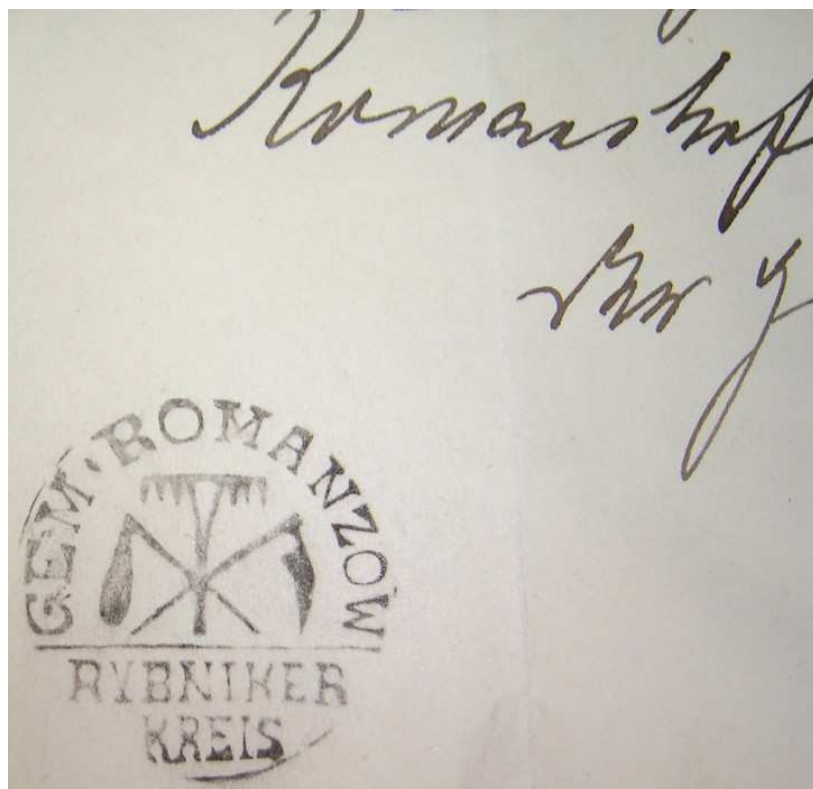 Romanshof
Der G
GEM. ROMANZOW
RYBNIKER
KREIS